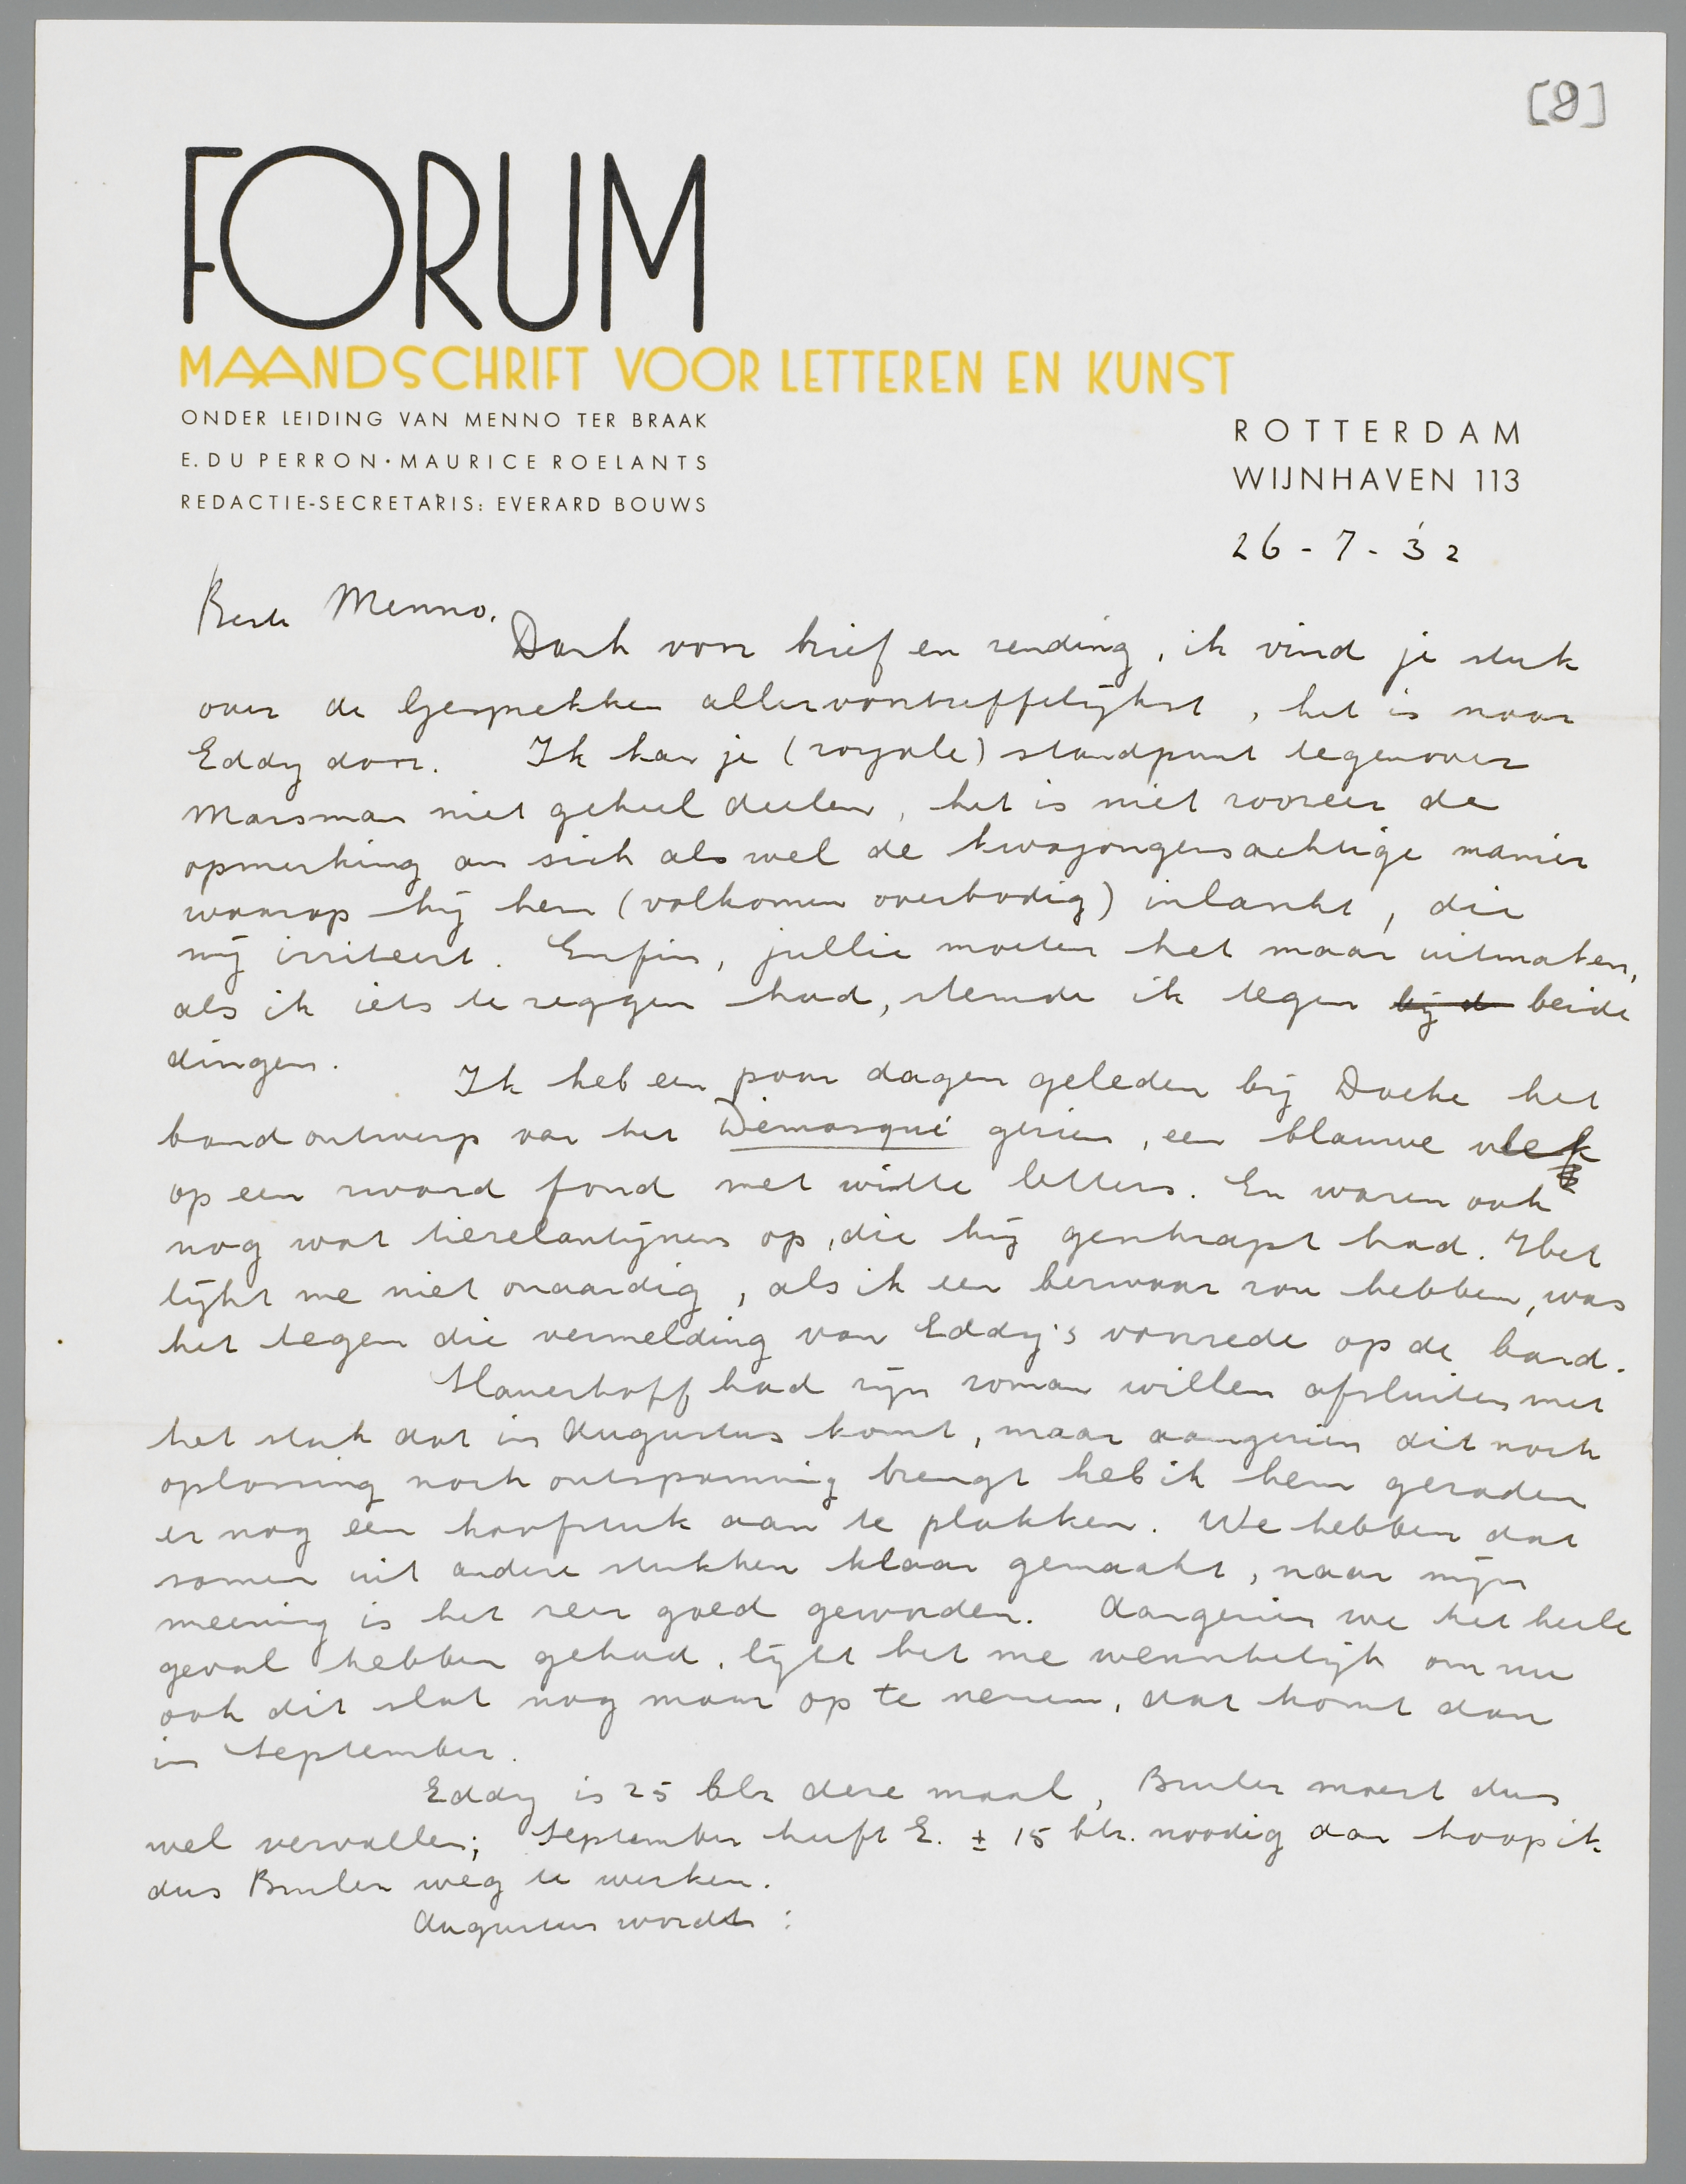 [8]
FORUM
MAANDSCHRIFT VOOR LETTEREN EN KUNST
ONDER LEIDING VAN MENNO TER BRAAK
E. DU PERRON · MAURICE ROELANTS
REDACTIE-SECRETARIS: EVERARD BOUWS
ROTTERDAM
WIJNHAVEN 113
26-7-32
Beste Menno.
Dank voor brief en zending, ik vind je stuk
over de Gesprekken allervoortreffelijkst, het is naar
Eddy door. Ik kan je (royale) standpunt tegenover
Marsman niet geheel deelen, het is niet zoozeer de
opmerking an sich als wel de kwajongensachtige manier
waarop hij hem (volkomen overbodig) inlascht, die
mij irriteert. Enfin, jullie moeten het maar uitmaken,
als ik iets te zeggen had, stemde ik tegen bij d beide
dingen.
Ik heb een paar dagen geleden bij Doeke het
bandontwerp van het Démasqué gezien, een blauwe vlek
op een zwart fond met witte letters. En waren ook
nog wat tierelantijnen op, die hij geschrapt had. Het
lijkt me niet onaardig, als ik een bezwaar zou hebben, was
het tegen die vermelding van Eddy's voorrede op de band.
Slauerhoff had zijn roman willen afsluiten met
het stuk dat in Augustus komt, maar aangezien dit noch
oplossing noch ontspanning brengt heb ik hem geraden
er nog een hoofstuk aan te plakken. We hebben dat
samen uit andere stukken klaar gemaakt, naar mijn
meening is het zeer goed geworden. Aangezien we het heele
geval hebben gehad, lijkt het me wenschelijk om nu
ook dit slot nog maar op te nemen, dat komt dan
in September.
Eddy is 25 blz deze maal, Brulez moest dus
wel vervallen; September heeft E. ± 15 blz. noodig dan hoop ik
dus Brulez weg te werken.
Augustus wordt: